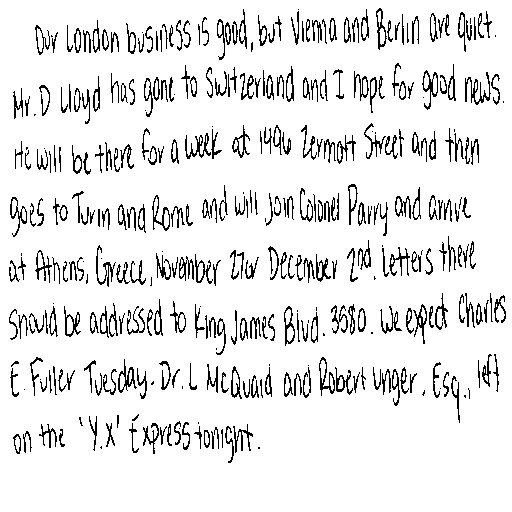 Our London business is good, but Vienna and Berlin are quiet.
Mr. D Lloyd has gone to Switzerland and I hope for good news.
He will be there for a week at 1496 Zermott Street and then
goes to Turin and Rome and will join Colonel Parry and arrive
at Athens, Greece, November 27 or December 2nd. Letters there
should be addressed to King James Blvd. 3580. We expect Charles
E. Fuller Tuesday. Dr. L McQuaid and Robert Unger, Esq., left
on the 'Y.X' Express tonight.